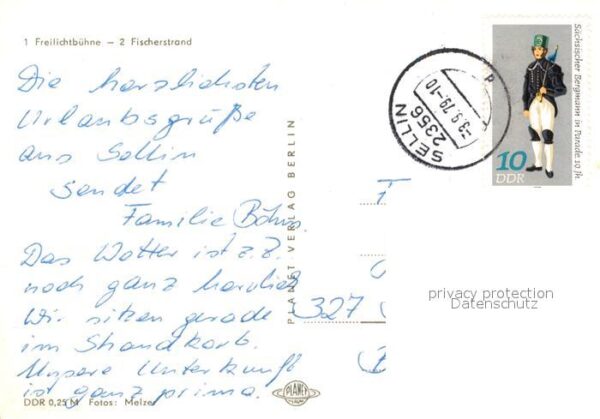 1 Freilichtbühne — 2 Fischerstrand
Die herzlichsten
Urlaubsgrüße
aus Sellin
sendet
Familie
Das Wetter ist z.Z.
noch ganz herrlich
Wir sitzen gerade
im Strandkorb.
Unsere Unterkunft
ist ganz prima.
DDR 0,25 M Fotos: Melzer
PLANET VERLAG BERLIN
PLANET
SELLIN
2356
-3.9.79-10
P
Sächsischer Bergmann in Parade 19. Jh.
10
DDR
327
privacy protection
Datenschutz